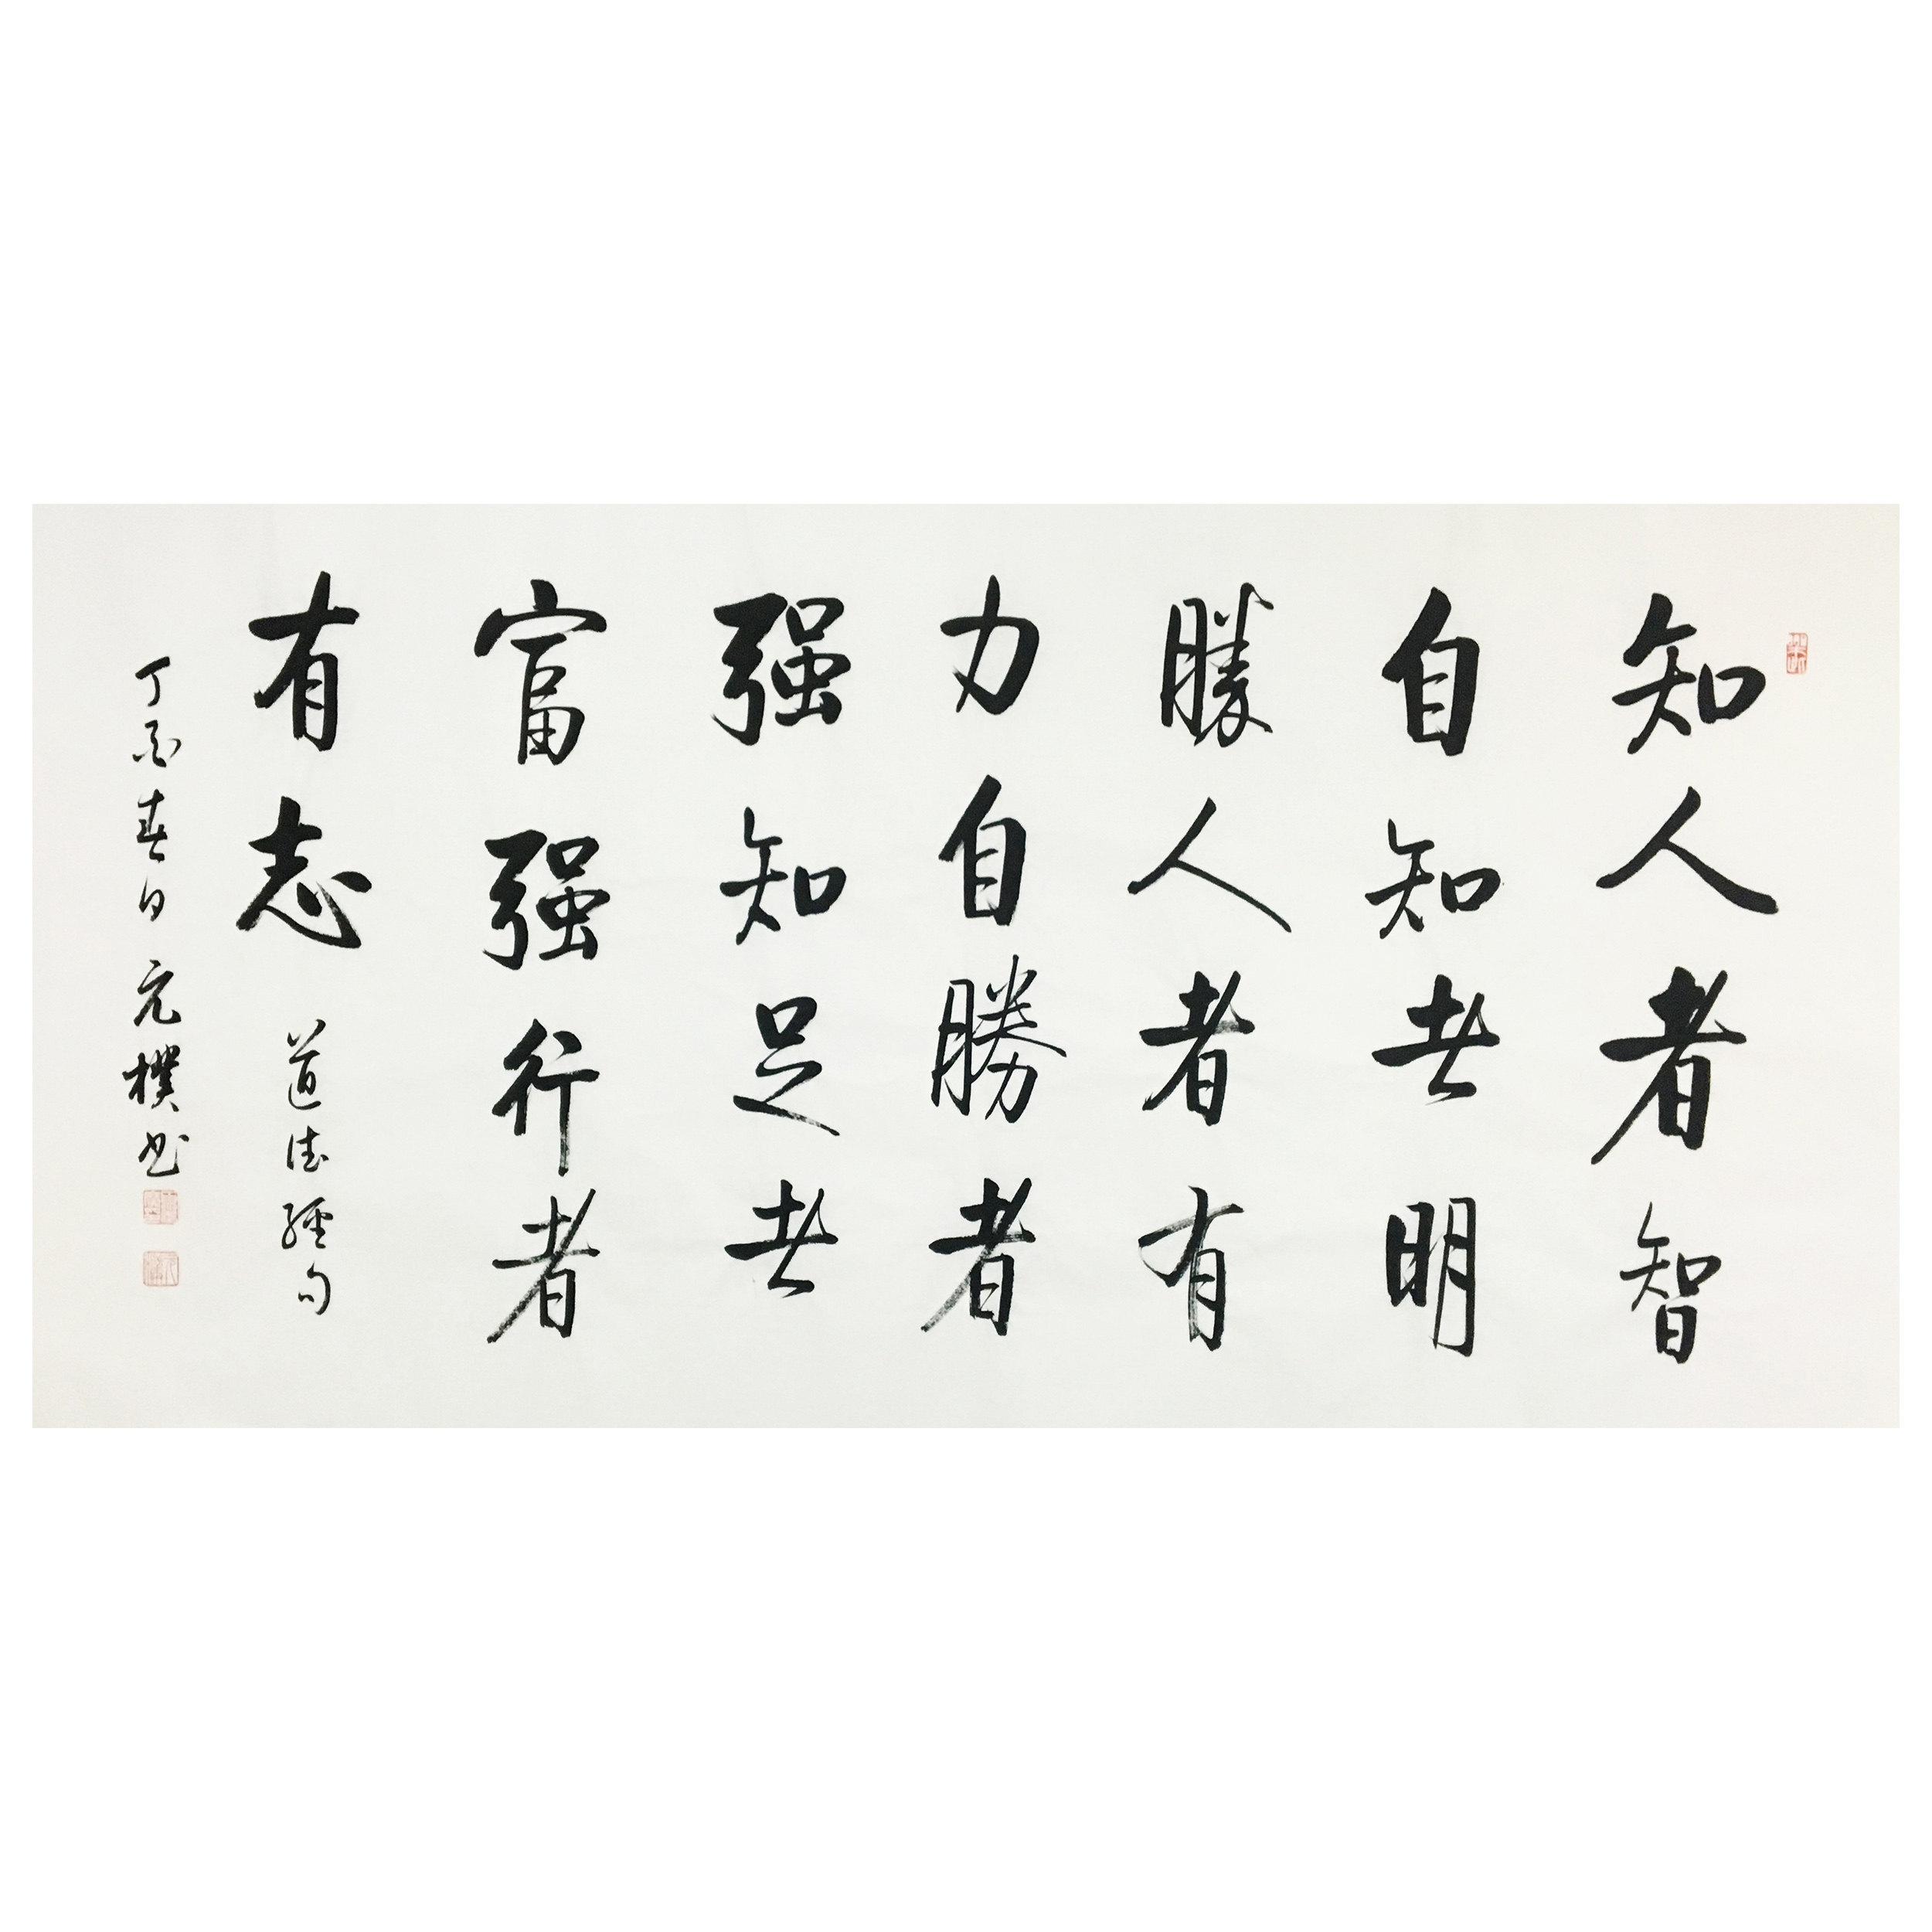 知人者智
自知者明
勝人者有
力自勝者
强知足者
富强行者
有志
道德經句
丁酉春月元樸书